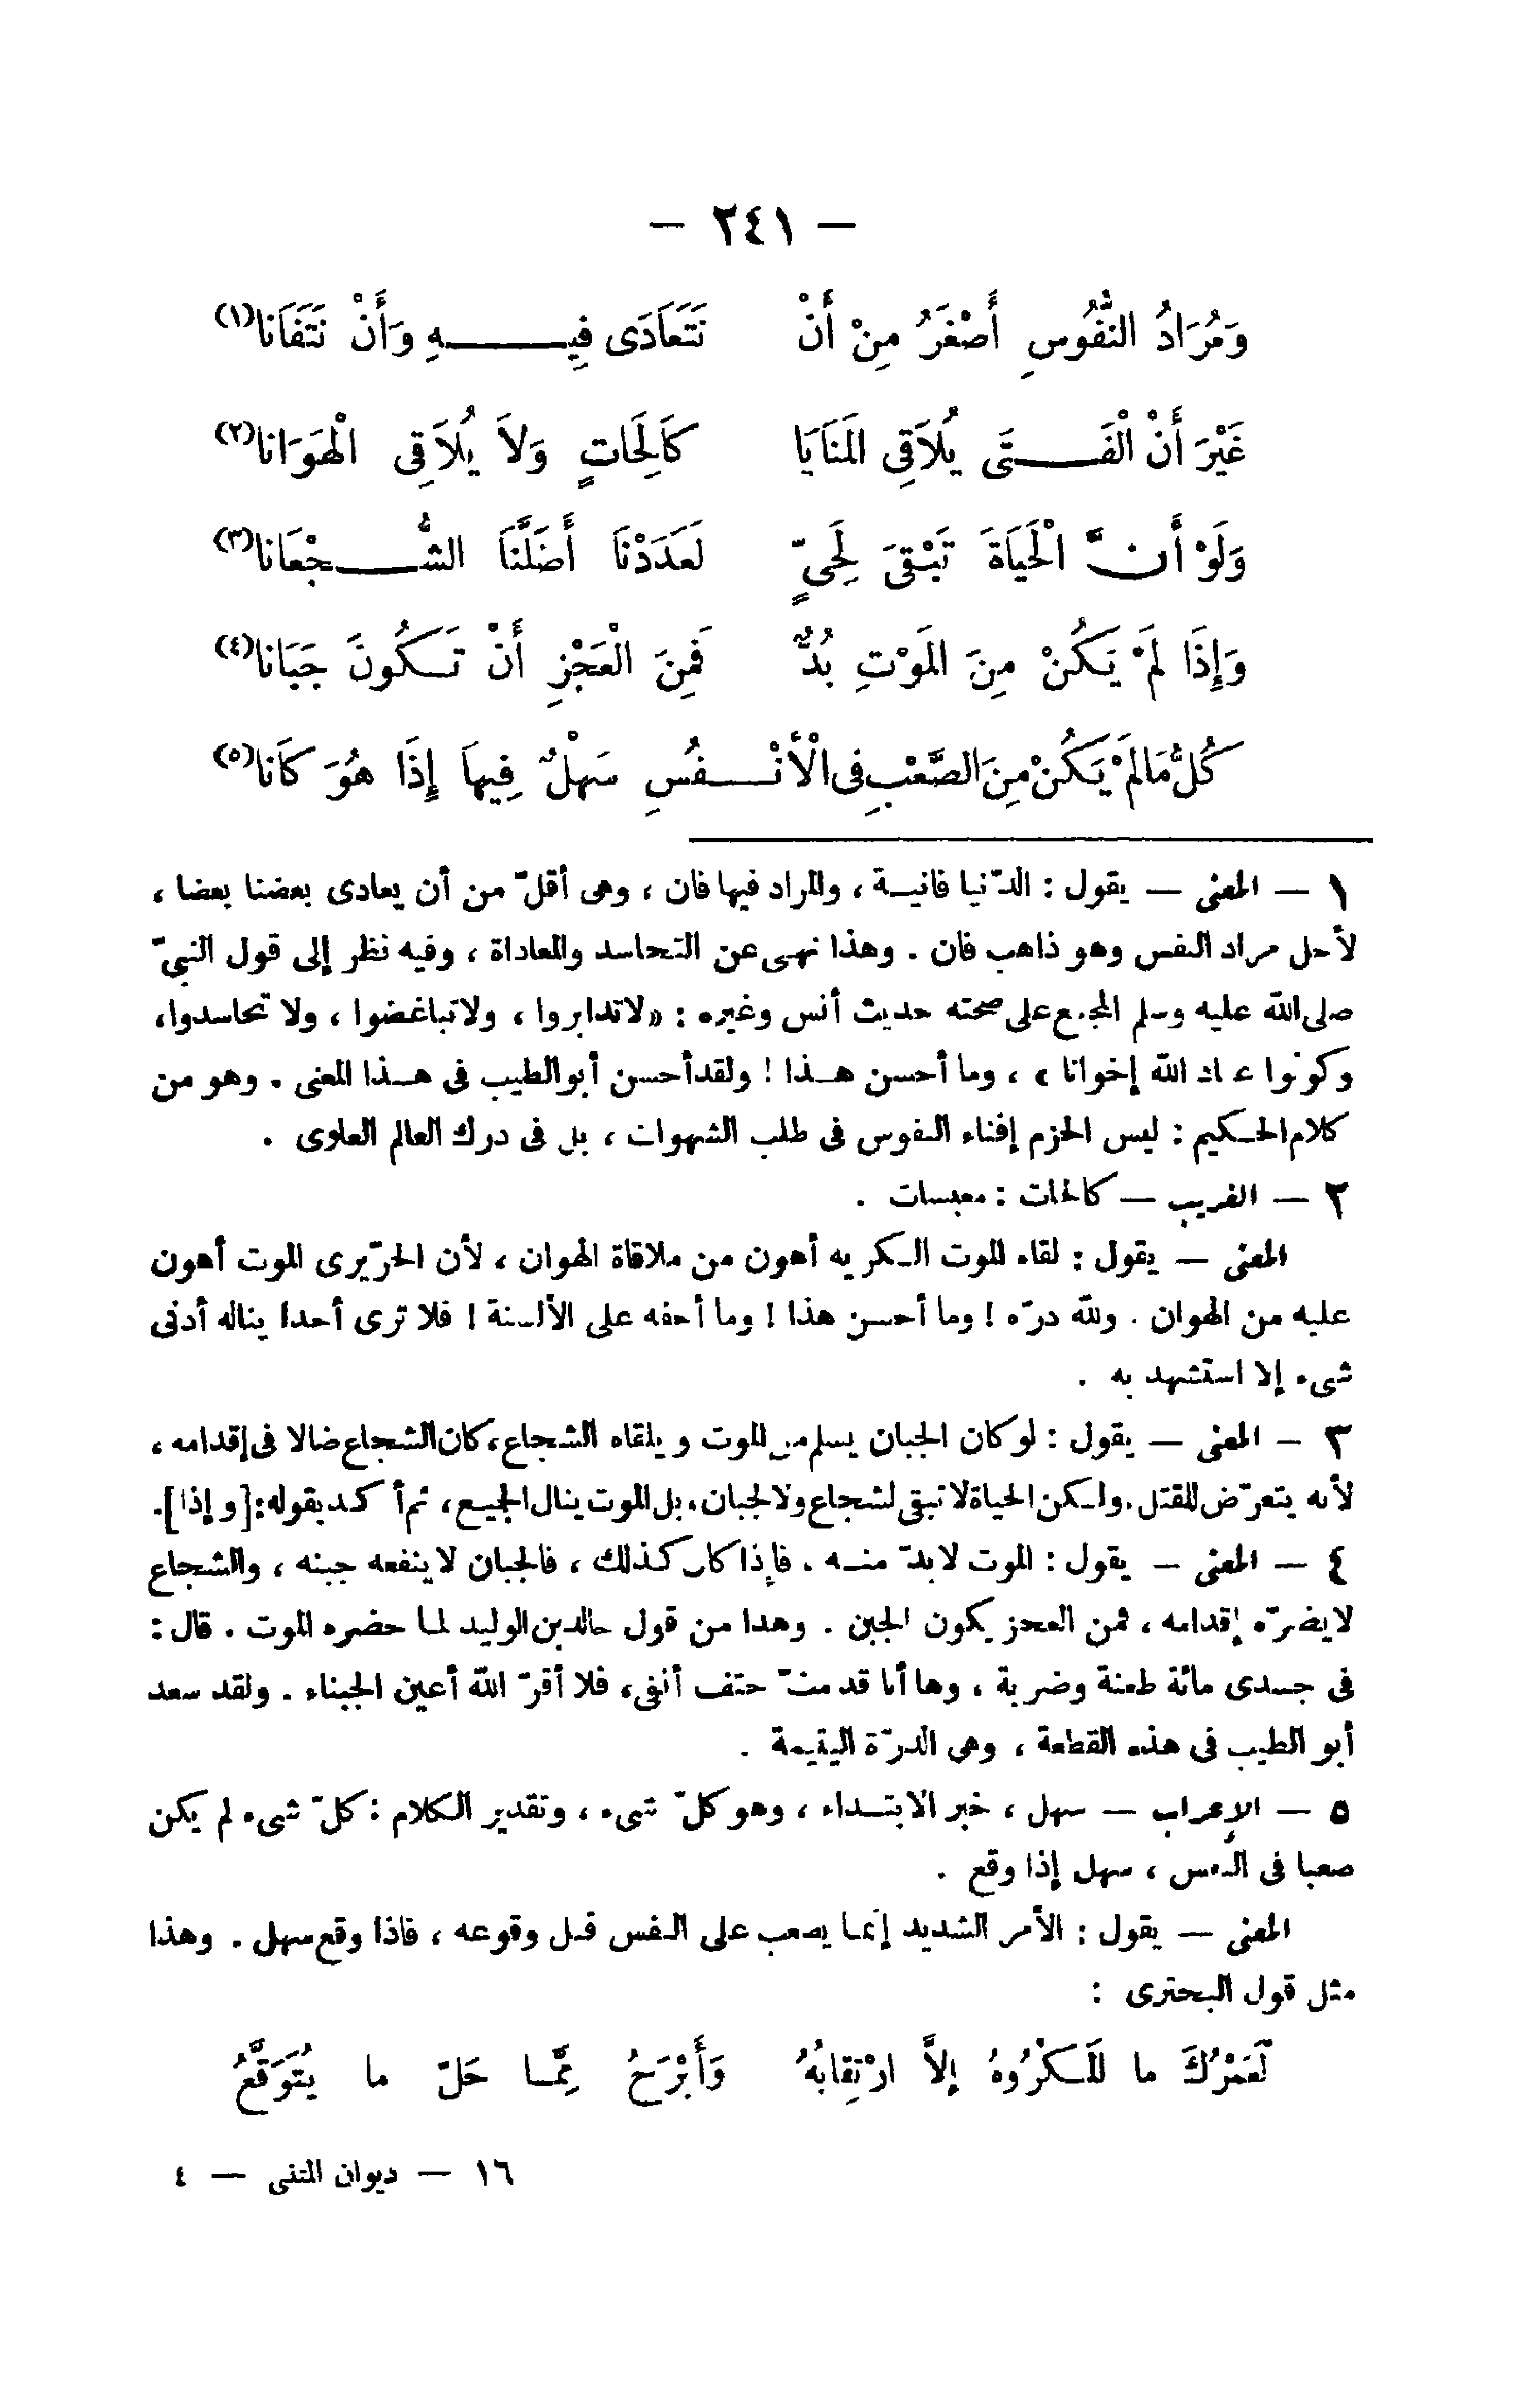 — ٢٤١ —
وَمُرَادُ النُّفُوسِ أَصْغَرُ مِنْ أَنْ نَتَعَادَى فِيــهِ وَأَنْ نَتَفَانَا(١)
غَيْرَ أَنْ الْفَــتَى يُلاَقِى المَنَايَا كَالِحَاتٍ وَلاَ يُلاَقِى الْهَوَانا(٢)
وَلَوْ أَنَّ الْحَيَاةَ تَبْقَىَ لِحَىٍّ لَعَدَدْنَا أَضَلَّنَا الشُّــجْعَانا(٣)
وَإِذَا لَمْ يَكُنْ مِنَ المَوْتِ بُدٌّ فَمِنَ الْعَجْزِ أَنْ تَـكُونَ جَبَانا(٤)
كُلُّ مَالَمْ يَكُنْ مِنَ الصَّعْبِ فى الْأَنْــفُسِ سَهْلٌ فِيهاَ إِذَا هُوَ كَانا(٥)
١ — المعنى — يقول : الدّنيا فانيـة ، والمراد فيها فان ، وهى أقلّ من أن يعادى بعضنا بعضا ،
لأجل مراد النفس وهو ذاهب فان . وهذا نهى عن التحاسد والمعاداة ، وفيه نظر إلى قول النبىّ
صلى الله عليه وسلم المجمع على صحته حديث أنس وغيره : «لاتدابروا ، ولاتباغضوا ، ولا تحاسدوا،
وكونوا عباد الله إخوانا » ، وما أحسن هـذا ! ولقد أحسن أبو الطيب فى هـذا المعنى . وهو من
كلام الحـكيم : ليس الحزم إفناء النفوس فى طلب الشهوات ، بل فى درك العالم العلوى .
٢ — الغريب — كالحات : معبسات .
المعنى — يقول : لقاء الموت الـكريه أهون من ملاقاة الهوان ، لأن الحرّ يرى الموت أهون
عليه من الهوان . ولله درّه ! وما أحسن هذا ! وما أخفه على الألسنة ! فلا ترى أحدا يناله أدنى
شىء إلا استشهد به .
٣ — المعنى — يقول : لو كان الجبان يسلم من الموت ويلقاه الشجاع، كان الشجاع ضالا فى إقدامه ،
لأنه يتعرّض للقتل . ولـكن الحياة لا تبقى لشجاع ولا لجبان، بل الموت ينال الجميع ، ثم أكد بقوله:[وإذا].
٤ — المعنى — يقول : الموت لابدّ منـه . فإذا كان كذلك ، فالجبان لاينفعه جبنه ، والشجاع
لايضرّه إقدامه ، فمن العجز يكون الجبن . وهذا من قول خالد بن الوليد لما حضره الموت . قال :
فى جسدى مائة طعنة وضربة ، وها أنا قد متّ حتف أنفى، فلا أقرّ الله أعين الجبناء . ولقد سعد
أبو الطيب فى هذه القطعة ، وهى الدرّة اليتيمة .
٥ — الإعراب — سهل ، خبر الابتـداء ، وهو كلّ شىء ، وتقدير الكلام : كلّ شىء لم يكن
صعبا فى النفس ، سهل إذا وقع .
المعنى — يقول : الأمر الشديد إنما يصعب على النفس قبل وقوعه ، فاذا وقع سهل . وهذا
مثل قول البحترى :
لَعَمْرُكَ ما المَـكْرُوهُ إلاَّ ارْتِقابُهُ وَأَبْرَحُ مِمَّـا حَلّ ما يُتَوَقَّعُ
١٦ — ديوان المتنبى — ٤